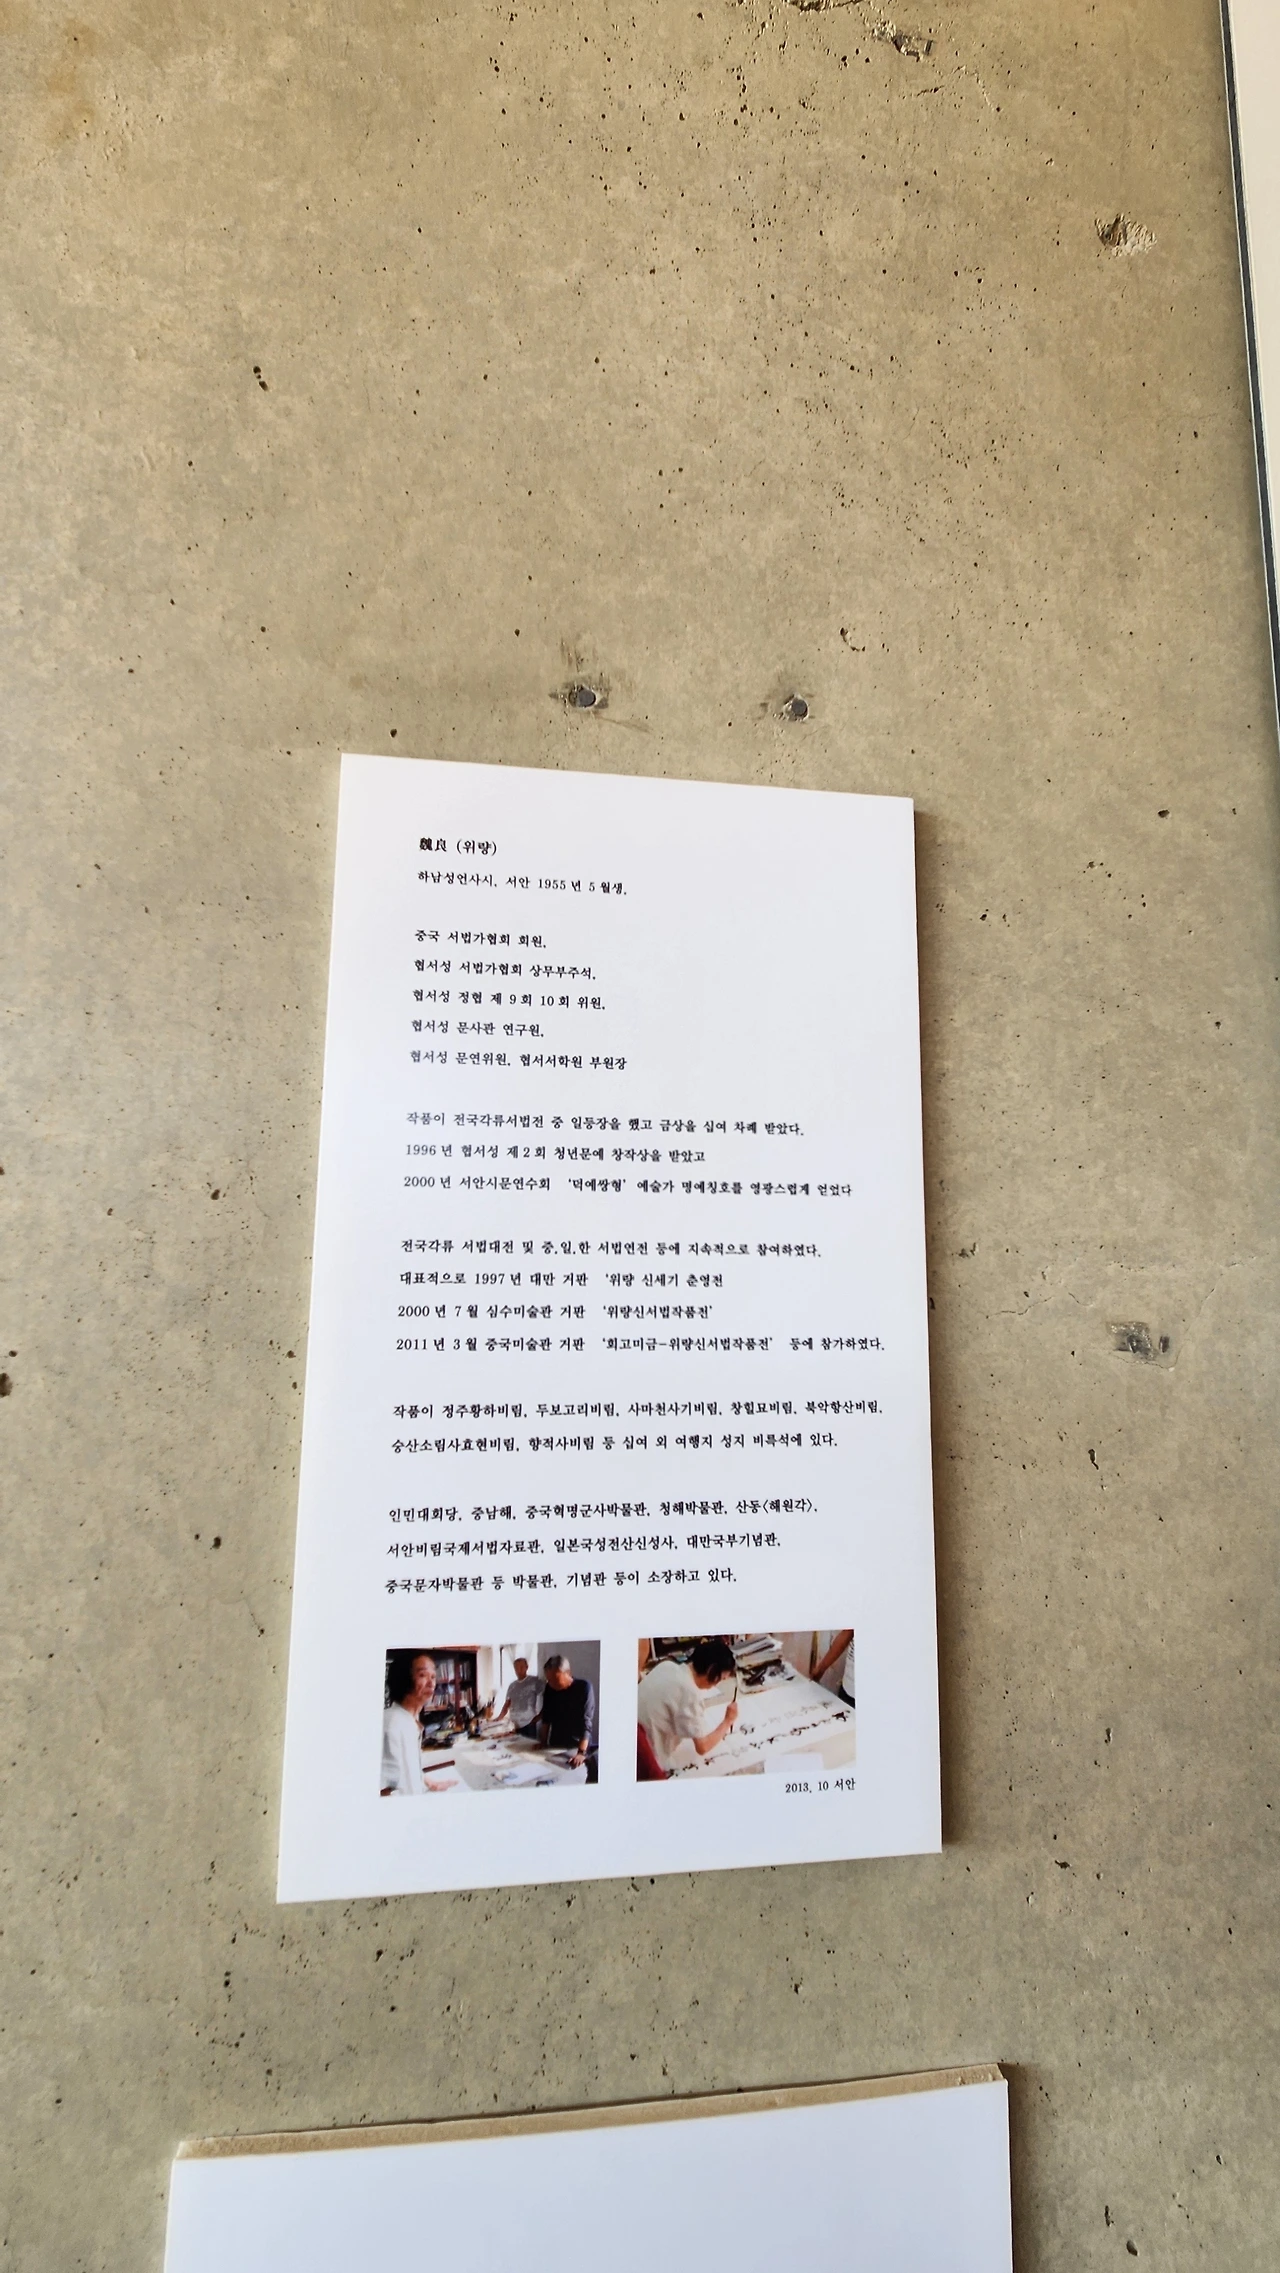 魏良 (위량)
하남성언사시, 서안 1955년 5월생,
중국 서법가협회 회원,
협서성 서법가협회 상무부주석,
협서성 정협 제 9회 10회 위원,
협서성 문사관 연구원,
협서성 문연위원, 협서서학원 부원장
작품이 전국각류서법전 중 일등장을 했고 금상을 십여 차례 받았다.
1996년 협서성 제2회 청년문예 창작상을 받았고
2000년 서안시문연수회 '덕예쌍형' 예술가 명예칭호를 영광스럽게 얻었다
전국각류 서법대전 및 중,일,한 서법연전 등에 지속적으로 참여하였다.
대표적으로 1997년 대만 거판 '위량 신세기 춘영전
2000년 7월 심수미술관 거판 '위량신서법작품전'
2011년 3월 중국미술관 거판 '회고미금-위량신서법작품전' 등에 참가하였다.
작품이 정주황하비림, 두보고리비림, 사마천사기비림, 창힐묘비림, 북악항산비림,
숭산소림사효현비림, 향적사비림 등 십여 외 여행지 성지 비륵석에 있다.
인민대회당, 중남해, 중국혁명군사박물관, 청해박물관, 산동〈해원각〉,
서안비림국제서법자료관, 일본국성전산신성사, 대만국부기념관,
중국문자박물관 등 박물관, 기념관 등이 소장하고 있다.
2013, 10 서안